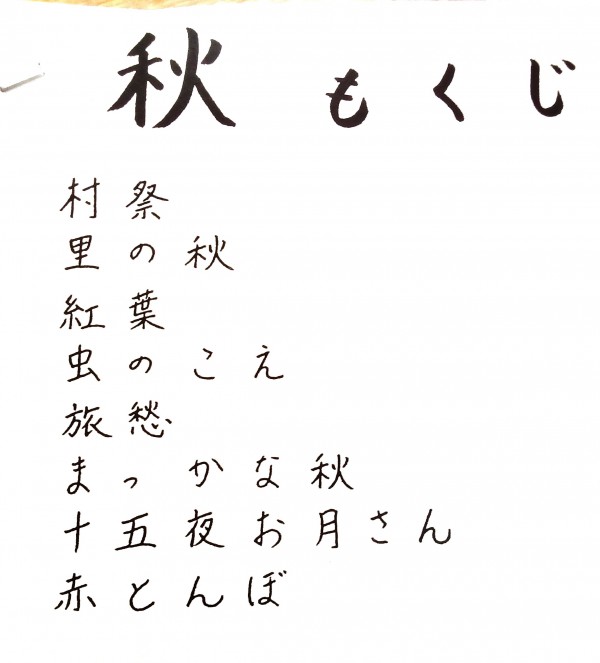 秋 もくじ
村祭
里の秋
紅葉
虫のこえ
旅愁
まっかな秋
十五夜お月さん
赤とんぼ